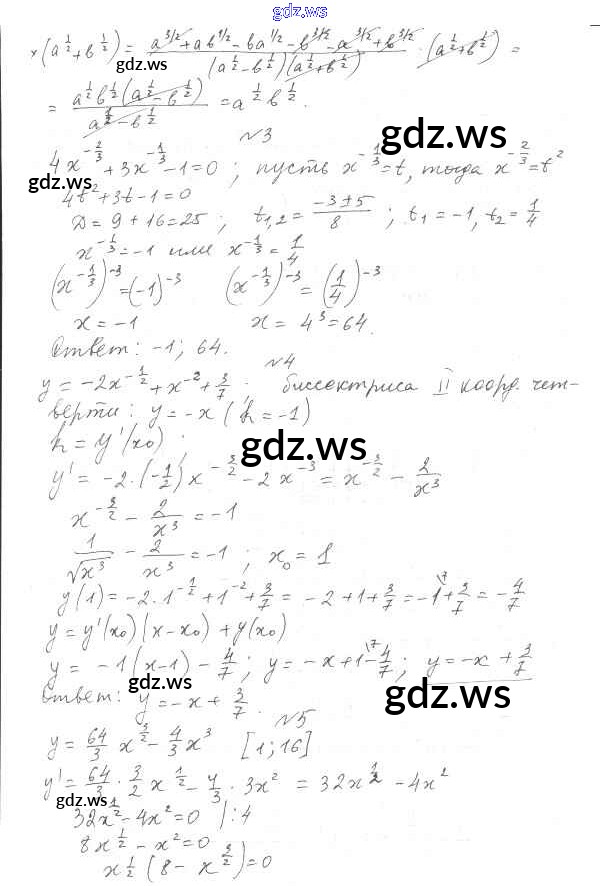 gdz.ws
× (a^{1/2} + b^{1/2}) = (a^{3/2} + ab^{1/2} - ba^{1/2} - b^{3/2} - a^{3/2} + b^{3/2}) / ((a^{1/2} - b^{1/2})(a^{1/2} + b^{1/2})) · (a^{1/2} + b^{1/2}) =
= a^{1/2}b^{1/2}(a^{1/2} - b^{1/2}) / (a^{1/2} - b^{1/2}) = a^{1/2}b^{1/2}.
gdz.ws
№3
4x^{-2/3} + 3x^{-1/3} - 1 = 0 ; пусть x^{-1/3} = t, тогда x^{-2/3} = t^2
gdz.ws
4t^2 + 3t - 1 = 0
D = 9 + 16 = 25 ; t_{1,2} = (-3 ± 5)/8 ; t_1 = -1, t_2 = 1/4
x^{-1/3} = -1 или x^{-1/3} = 1/4
(x^{-1/3})^{-3} = (-1)^{-3} (x^{-1/3})^{-3} = (1/4)^{-3}
gdz.ws gdz.ws
x = -1 x = 4^3 = 64.
Ответ: -1; 64.
№4
y = -2x^{-1/2} + x^{-2} + 3/7 ; биссектриса II коорд. чет-
верти: y = -x (k = -1)
k = y'(x_0) ;
gdz.ws
y' = -2·(-1/2)x^{-3/2} - 2x^{-3} = x^{-3/2} - 2/x^3
x^{-3/2} - 2/x^3 = -1
1/√x^3 - 2/x^3 = -1 ; x_0 = 1
y(1) = -2·1^{-1/2} + 1^{-2} + 3/7 = -2 + 1 + 3/7 = -1\7 + 3/7 = -4/7
y = y'(x_0)(x - x_0) + y(x_0)
y = -1(x-1) - 4/7 ; y = -x + 1\7 - 4/7 ; y = -x + 3/7
gdz.ws gdz.ws
Ответ: y = -x + 3/7.
№5
y = 64/3 x^{3/2} - 4/3 x^3 [1; 16]
y' = 64/3 · 3/2 x^{1/2} - 4/3 · 3x^2 = 32x^{1/2} - 4x^2
gdz.ws gdz.ws
32x^{1/2} - 4x^2 = 0 |:4
8x^{1/2} - x^2 = 0
x^{1/2}(8 - x^{3/2}) = 0